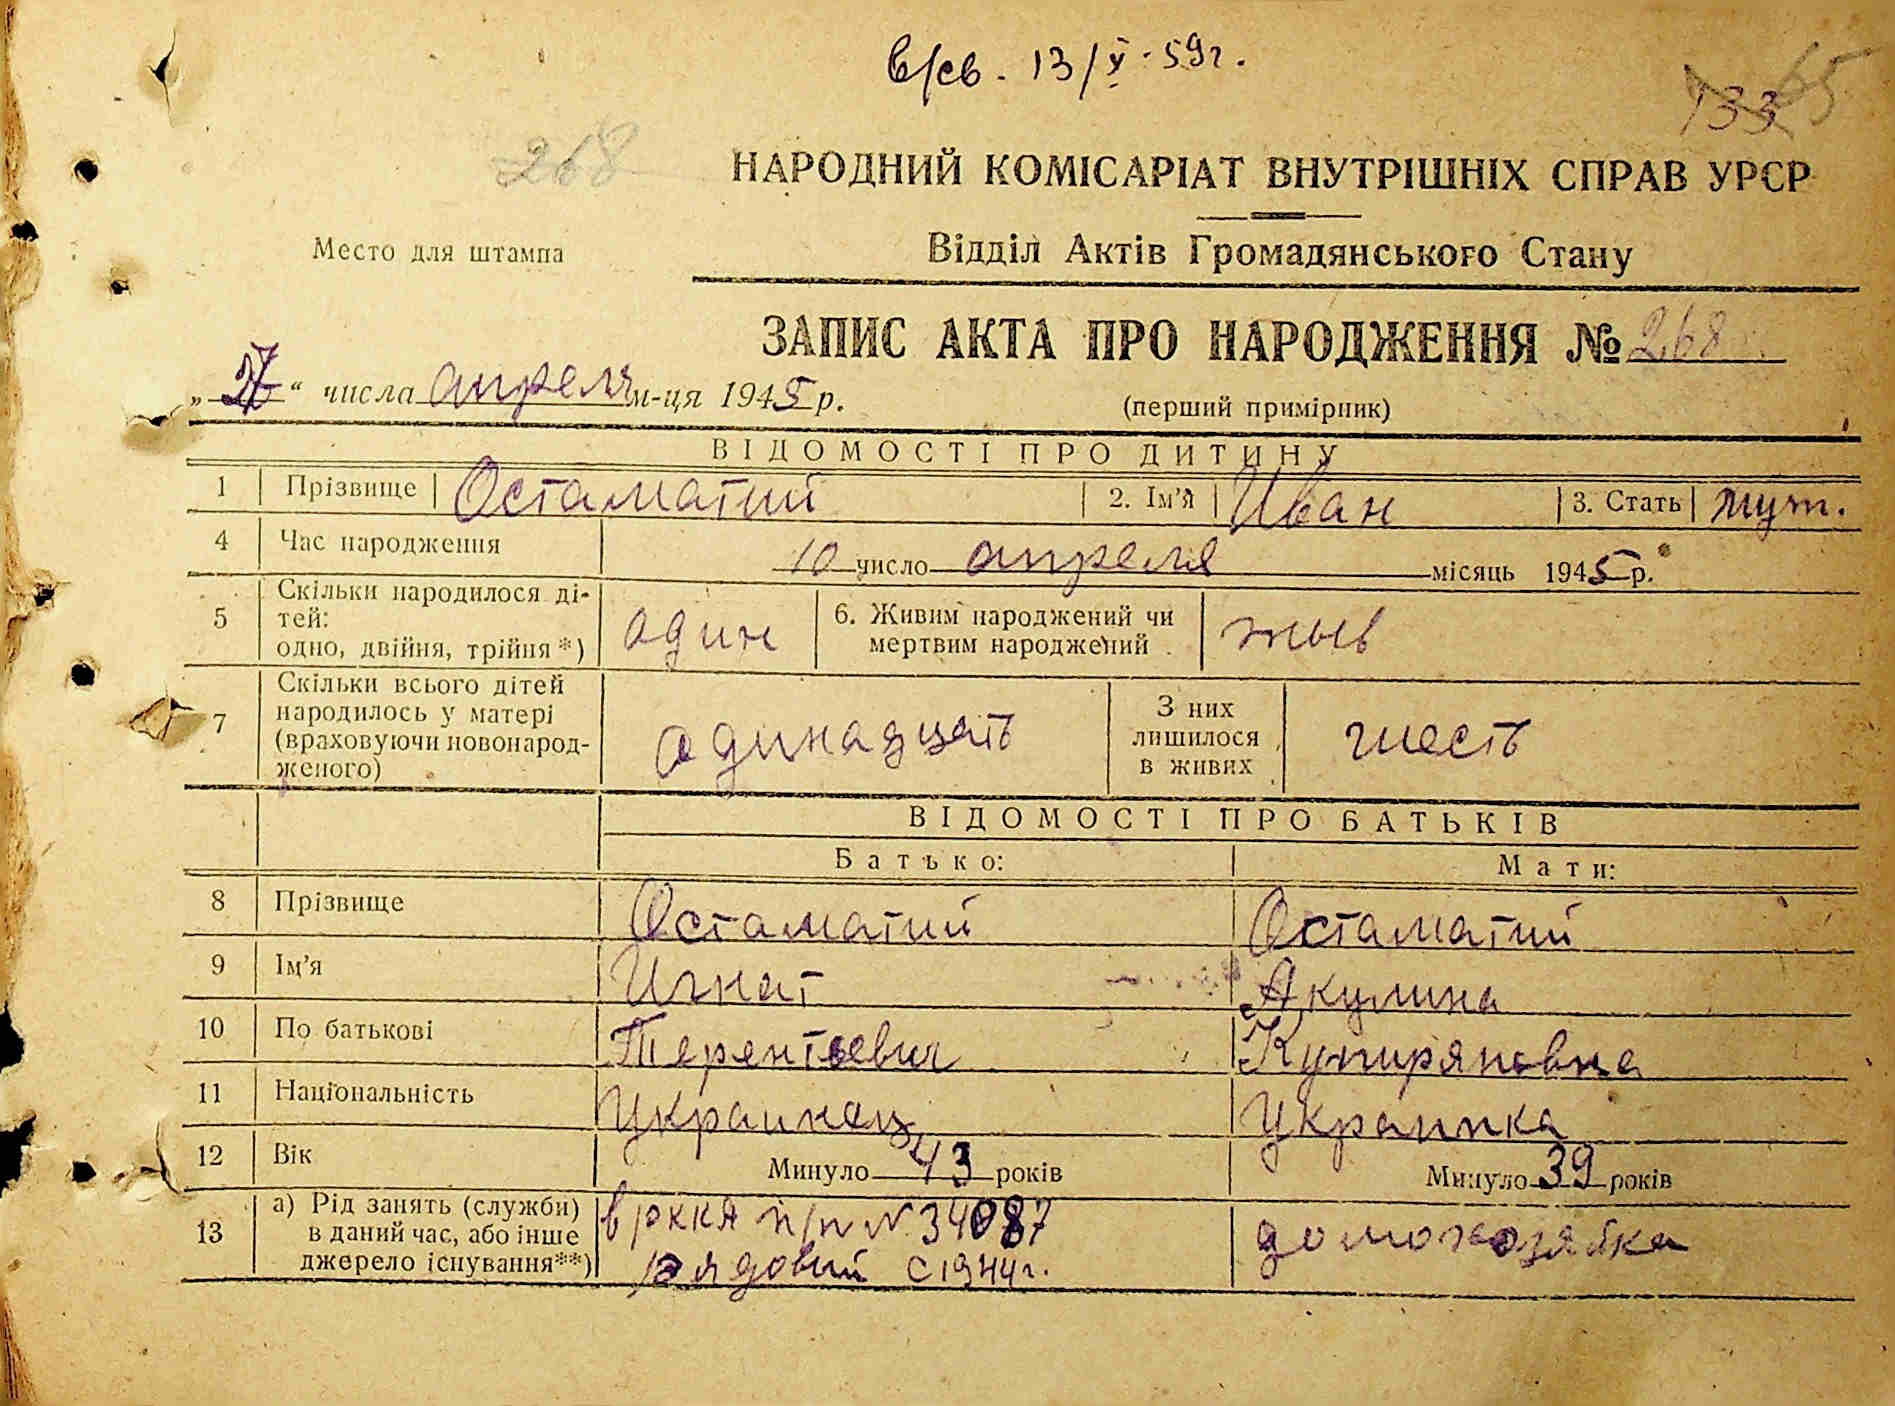 в/св. 13/V-59г.
133 65
268
НАРОДНИЙ КОМІСАРІАТ ВНУТРІШНІХ СПРАВ УРСР
Место для штампа
Відділ Актів Громадянського Стану
ЗАПИС АКТА ПРО НАРОДЖЕННЯ № 268
„27“ числа апреля м-ця 1945 р.
(перший примірник)
ВІДОМОСТІ ПРО ДИТИНУ
1 Прізвище Остаматий 2. Ім'я Иван 3. Стать муж.
4 Час народження 10 число апреля місяць 1945 р.
5 Скільки народилося ді-
тей:
одно, двійня, трійня*) один 6. Живим народжений чи
мертвим народжений жыв
7 Скільки всього дітей
народилось у матері
(враховуючи новонарод-
женого) одинадцать З них
лишилося
в живих шесть
ВІДОМОСТІ ПРО БАТЬКІВ
Батько: Мати:
8 Прізвище Остаматий Остаматий
9 Ім'я Игнат Акулина
10 По батькові Терентьевич Куприяновна
11 Національність Украинец Украинка
12 Вік Минуло 43 років Минуло 39 років
13 а) Рід занять (служби)
в даний час, або інше
джерело існування**) в РККА п/п № 34087
рядовий с 1944г. домохозяйка